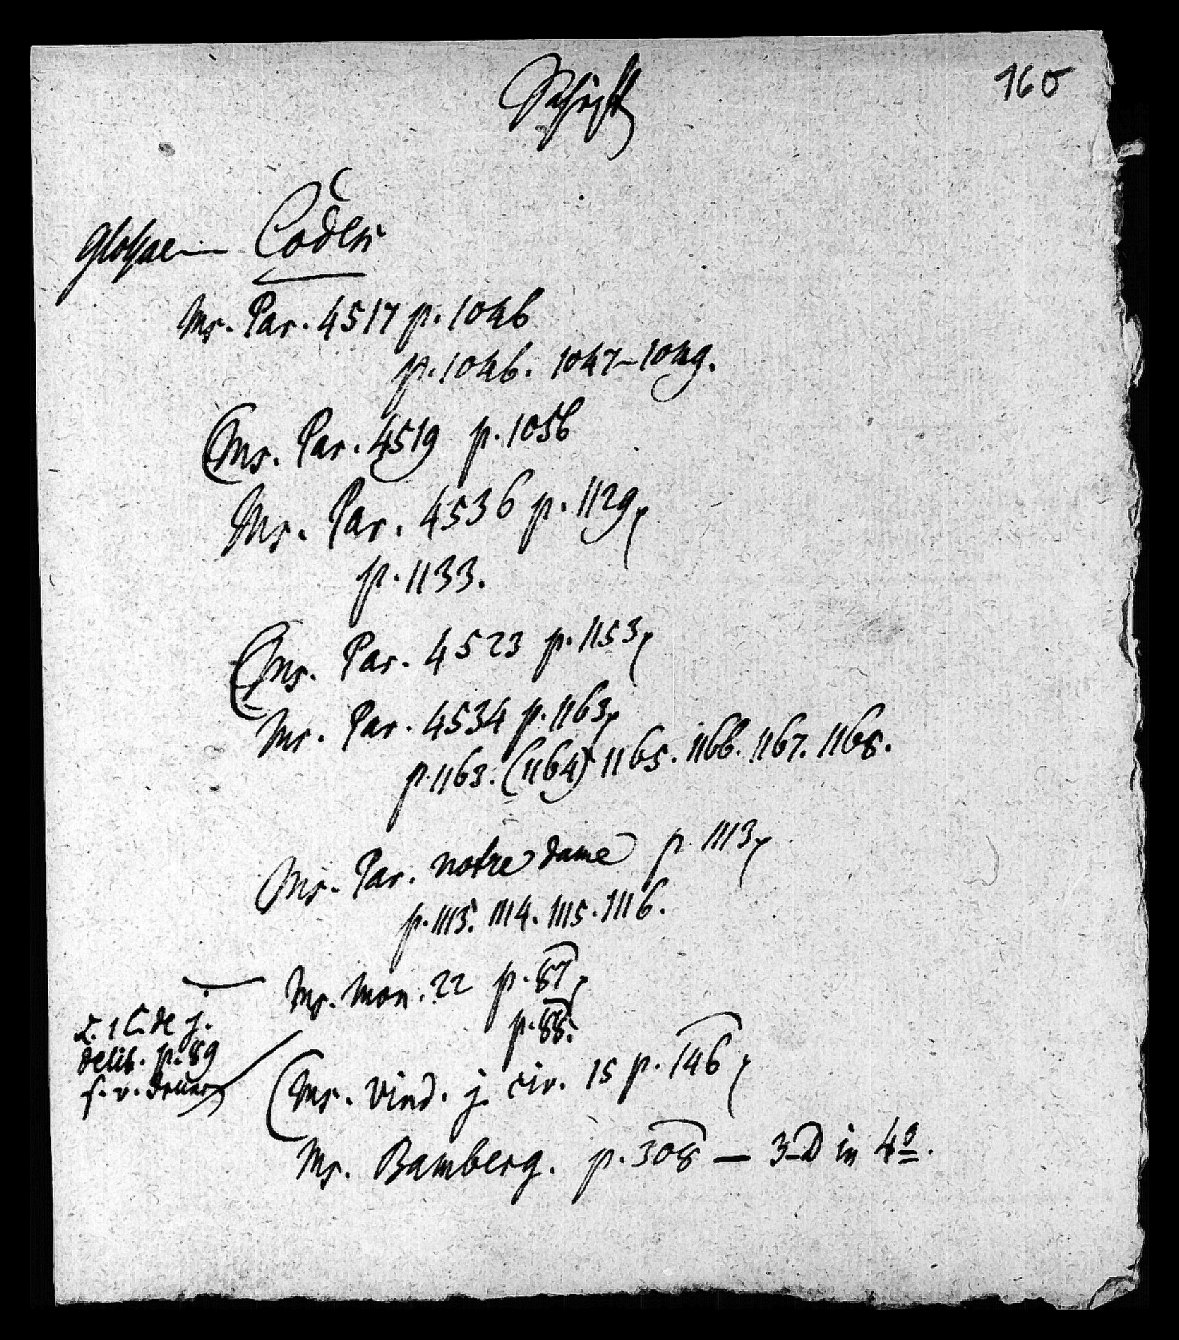 160
Schrift
Glossae — Codex
Ms. Par. 4517 p. 1046
p. 1046. 1047–1049.
(Ms. Par. 4519 p. 1056
Ms. Par. 4536 p. 1129,
p. 1133.
(Ms. Par. 4523 p. 1153,
Ms. Par. 4534 p. 1163,
p. 1163. (1164) 1165. 1166. 1167. 1168.
Ms. Par. notre dame p. 1113,
p. 1113. 1114. 1115. 1116.
— Ms. Mon. 22 p. 87,
p. 88.
L. 1 C. de j.
delib. p. 89
(Ms. Vind. j. civ. 15 p. 146,
Ms. Bamberg. p. 308 — 3 D in 4º.